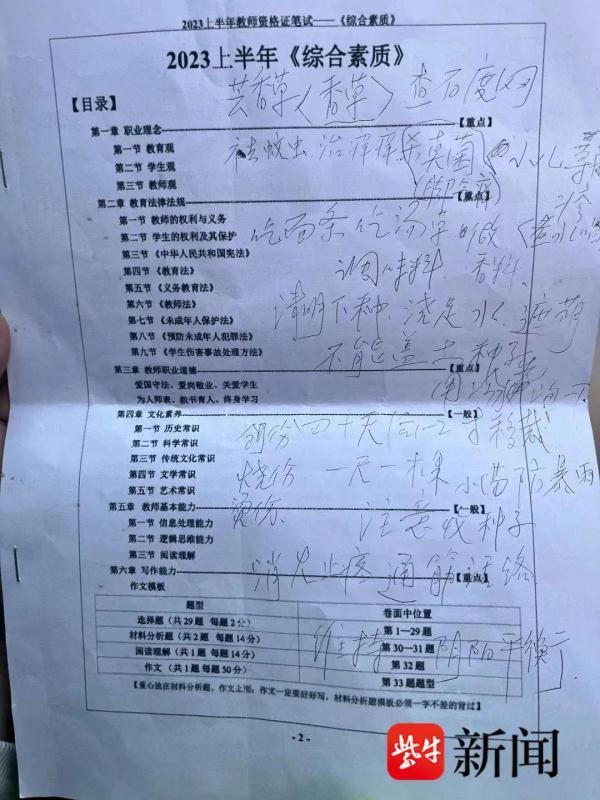 2023上半年教师资格证笔试——《综合素质》
2023上半年《综合素质》
芸香草（香草）查百度网
【目录】
第一章 职业理念 【重点】
第一节 教育观
祛蚊虫 治痒痒 杀真菌 小儿
第二节 学生观
第三节 教师观
第二章 教育法律法规 【重点】
第一节 教师的权利与义务
第二节 学生的权利及其保护
吃面条 吃汤
第三节 《中华人民共和国宪法》
调味料 香料
第四节 《教育法》
第五节 《义务教育法》
第六节 《教师法》
清明下种 浇足水 遮荫
第七节 《未成年人保护法》
第八节 《预防未成年人犯罪法》
第九节 《学生伤害事故处理方法》
不能盖土 种子
第三章 教师职业道德 【重点】
爱国守法、爱岗敬业、关爱学生
为人师表、教书育人、终身学习
第四章 文化素养 【一般】
第一节 历史常识
四十天后 移栽
第二节 科学常识
第三节 传统文化常识
第四节 文学常识
烧伤 一尺一棵 小苗防暴雨
第五节 艺术常识
第五章 教师基本能力 【一般】
烫伤 注意收种子
第一节 信息处理能力
第二节 逻辑思维能力
第三节 阅读理解
第六章 写作能力 【重点】
消炎止疼 通筋活络
作文模板
题型 卷面中位置
选择题（共29题 每题2分） 第1—29题
材料分析题（共2题 每题14分） 第30—31题
维持 阴阳平衡
阅读理解（共1题 每题14分） 第32题
作文（共1题 每题50分） 第33题题型
【重心放在材料分析题、作文上面；作文一定要好好写，材料分析题模板必须一字不差的背过】
- 2 -
紫牛新闻